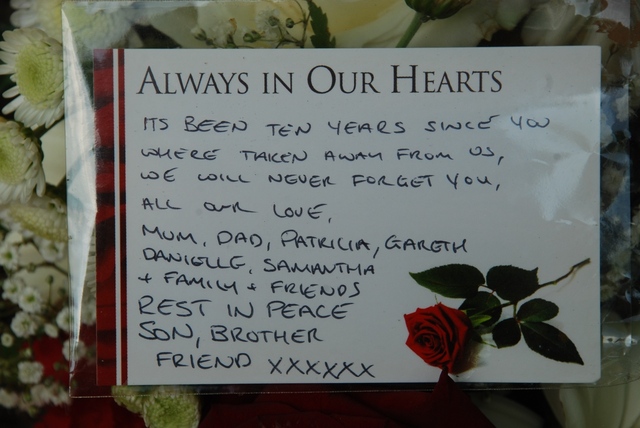 ALWAYS IN OUR HEARTS
ITS BEEN TEN YEARS SINCE YOU
WHERE TAKEN AWAY FROM US,
WE WILL NEVER FORGET YOU,
ALL OUR LOVE,
MUM, DAD, PATRICIA, GARETH
DANIELLE, SAMANTHA
+ FAMILY + FRIENDS
REST IN PEACE
SON, BROTHER
FRIEND XXXXXX